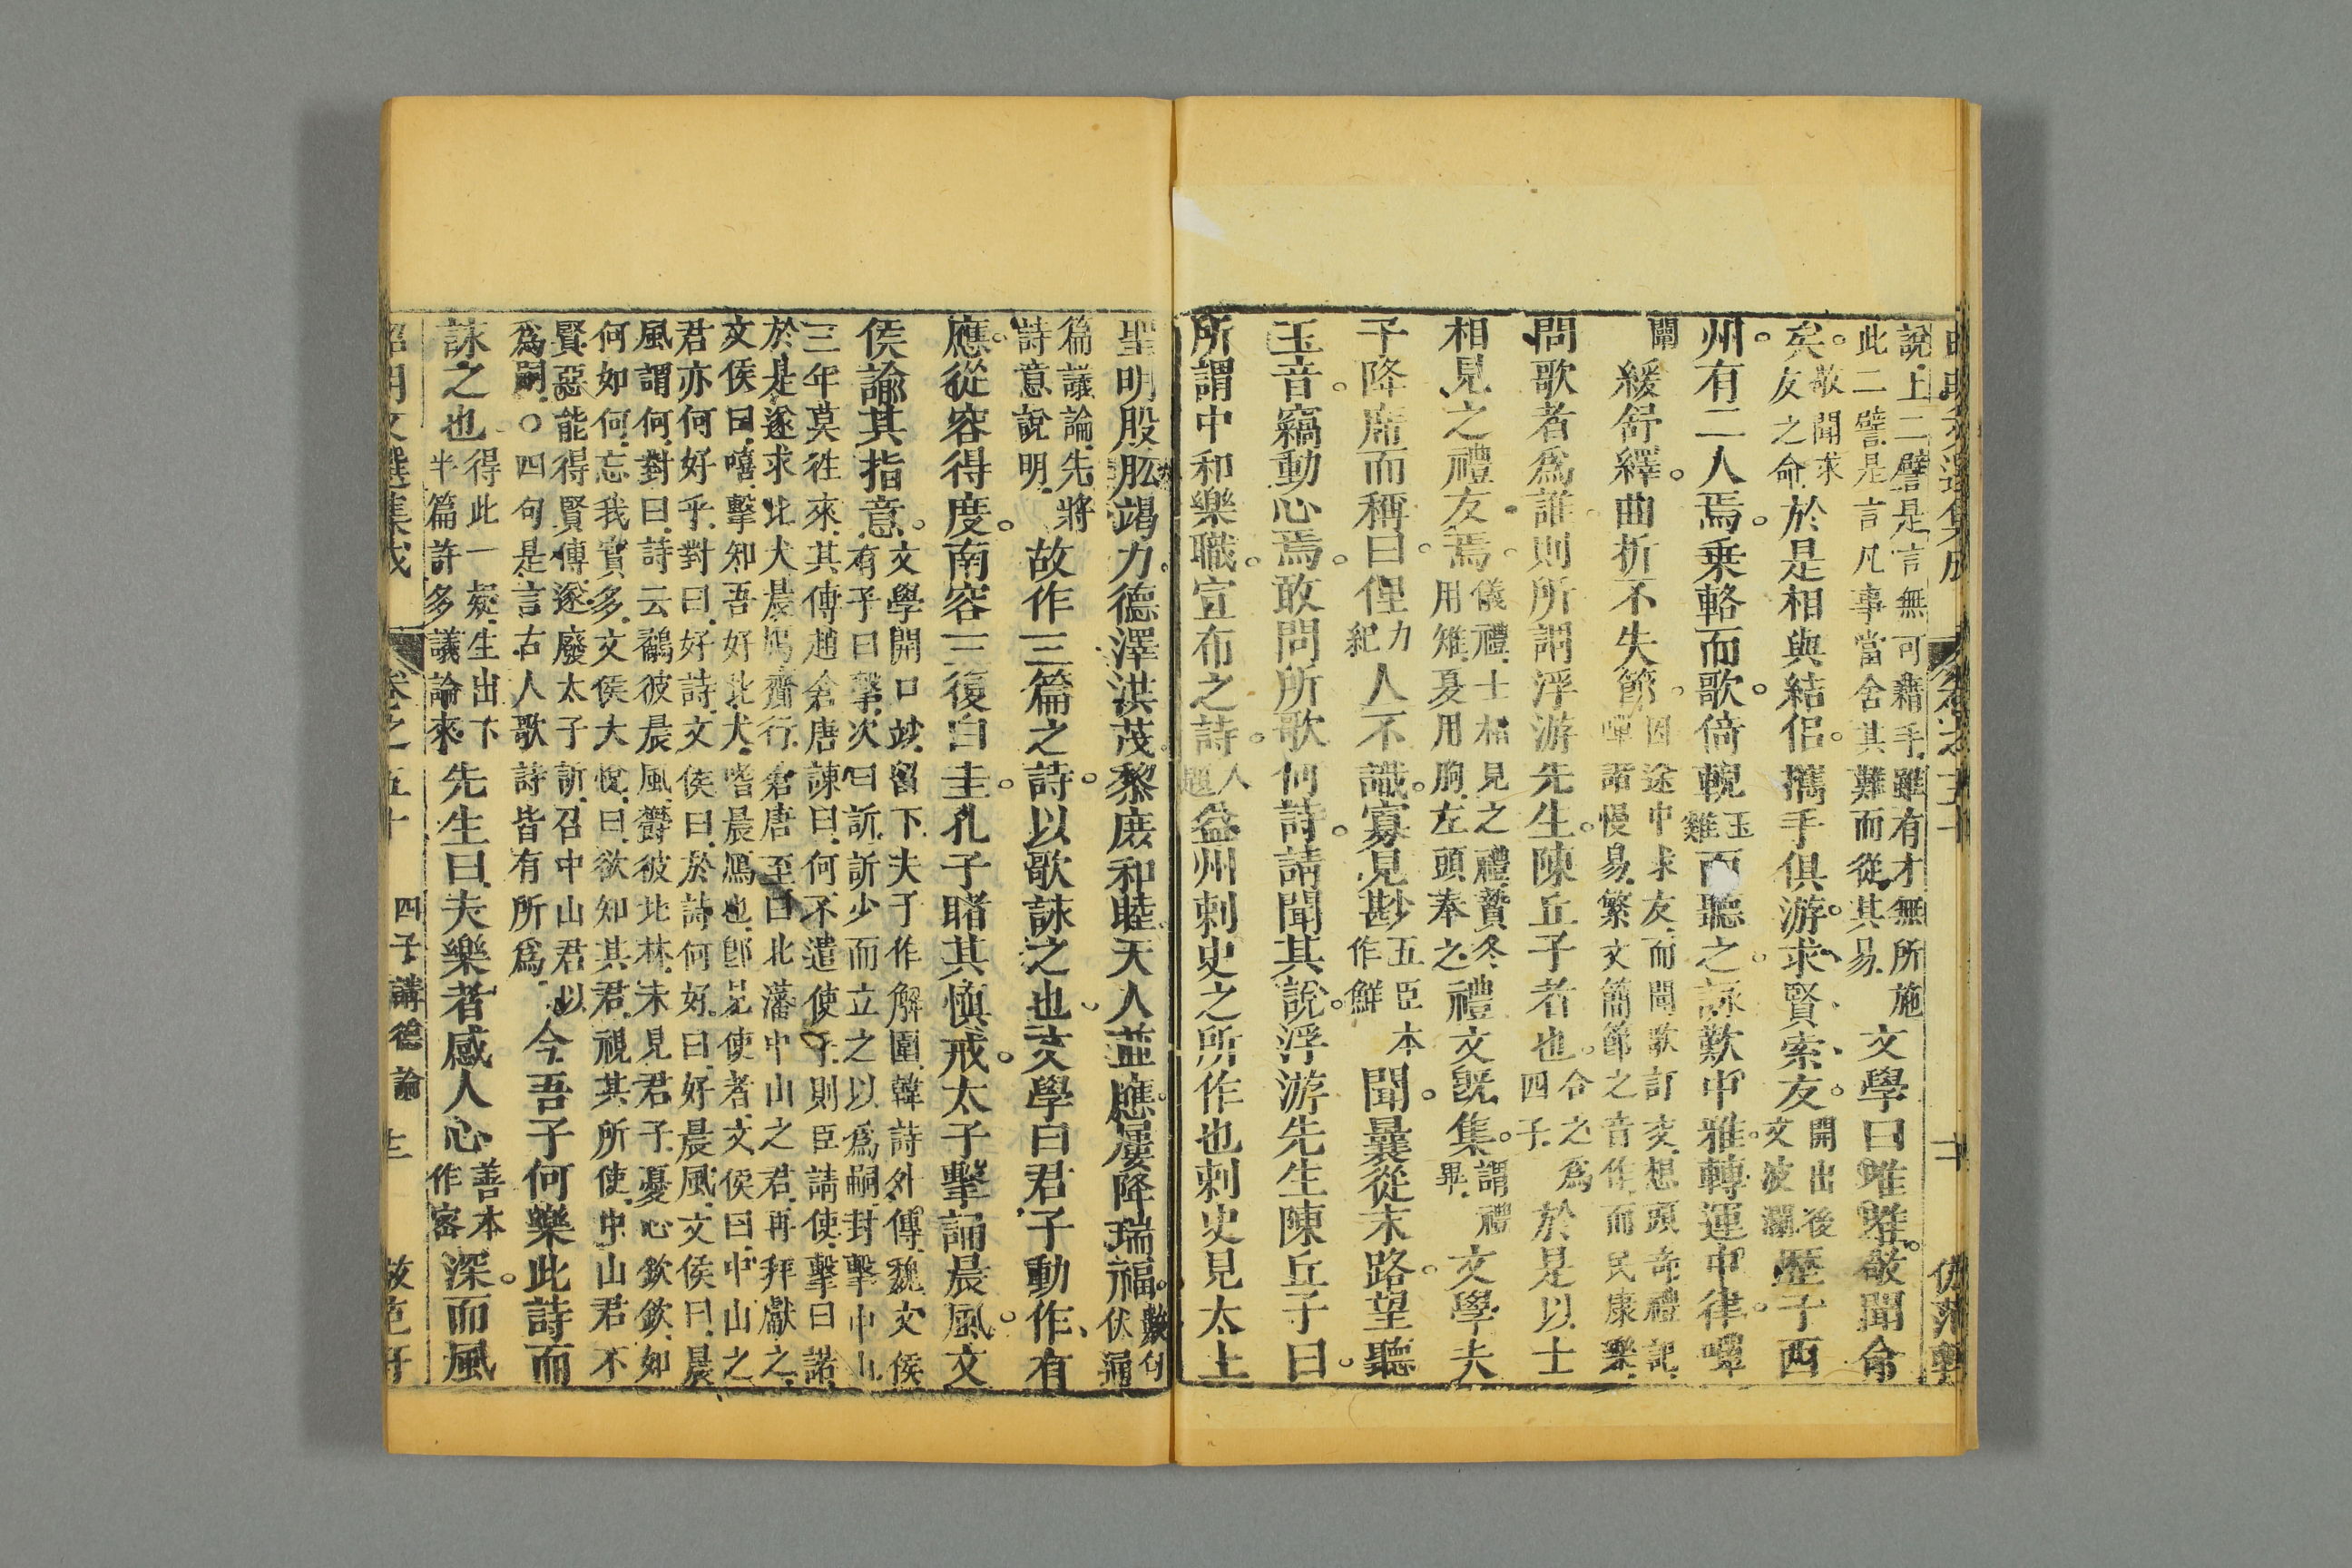 說上二譬是言無可藉手雖有才無所施
此二譬是言凡事當舍其難而從其易
文學曰唯唯敬聞命
矣
敬聞求
友之命
於是相與結侶攜手俱游求賢索友
開出後
文波瀾
歷于西
州有二人焉乗輅而歌倚輗
玉
雞
而聽之詠歎中雅轉運中律嘽
闡
緩舒繹曲折不失節
因途中求友而聞歌訂交想頭奇禮記
嘽諧慢易繁文簡節之音作而民康樂
問歌者爲誰則所謂浮游先生陳丘子者也
令之爲
四子
於是以士
相見之禮友焉
儀禮士相見之禮贄冬
用雉夏用腒左頭奉之
禮文旣集
謂禮
畢
文學夫
子降席而稱曰俚
力
紀
人不識寡見尠
五臣本
作鮮
聞曩從末路望聽
玉音竊動心焉敢問所歌何詩請聞其說浮游先生陳丘子曰
所謂中和樂職宣布之詩
人
題
益州刺史之所作也刺史見太上
聖明股肱竭力德澤洪茂黎庶和睦天人並應屢降瑞福
數句
伏滿
篇議論先將
詩意說明
故作三篇之詩以歌詠之也文學曰君子動作有
應從容得度南容三復白圭孔子睹其愼戒太子擊誦晨風文
侯諭其指意
文學開口竝畱下夫子作解圍韓詩外傳魏文侯
有子曰擊次曰訢訢少而立之以爲嗣封擊中山
三年莫徃來其傅趙倉唐諫曰何不遣使乎則臣請使擊曰諾
於是遂求北犬晨鴈齎行倉唐至曰北藩中山之君再拜獻之
文侯曰嘻擊知吾好北犬嗜晨鴈也卽見使者文侯曰中山之
君亦何好乎對曰好詩文侯曰於詩何好曰好晨風文侯曰晨
風謂何對曰詩云鴥彼晨風鬱彼北林未見君子憂心欽欽如
何如何忘我實多文侯大悅曰欲知其君視其所使中山君不
賢惡能得賢傅遂廢太子訢召中山君以
爲嗣〇四句是言古人歌詩皆有所爲
今吾子何樂此詩而
詠之也
得此一疑生出下
半篇許多議論來
先生曰夫樂者感人心
善本
作密
深而風
昭明文選集成 卷之五十 四子講德論